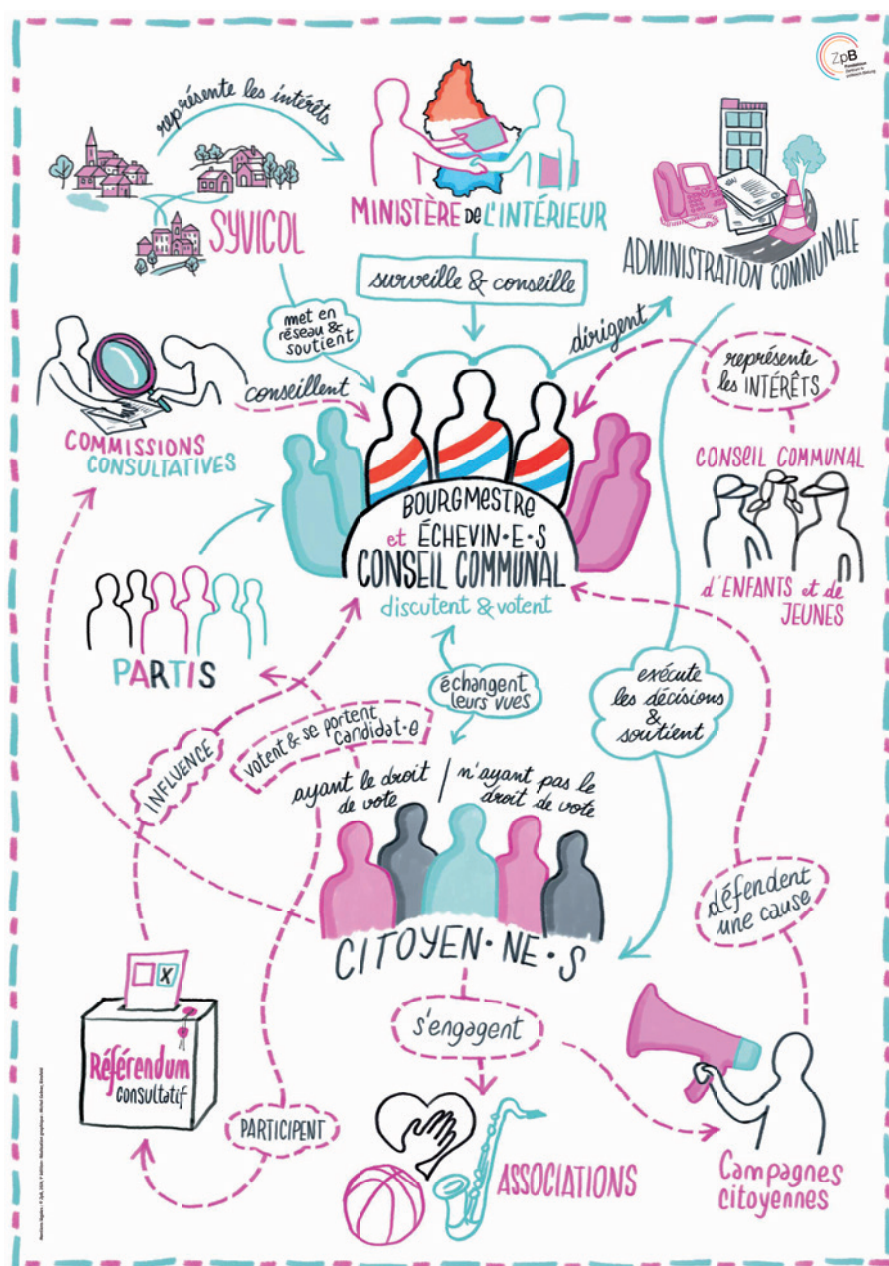 ZpB
Fondatioun
Zentrum fir
politesch Bildung
représente les intérêts
SYVICOL
MINISTÈRE DE L'INTÉRIEUR
ADMINISTRATION COMMUNALE
surveille & conseille
met en
réseau &
soutient
dirigent
représente
les INTÉRÊTS
conseillent
COMMISSIONS
CONSULTATIVES
CONSEIL COMMUNAL
d'ENFANTS et de
JEUNES
BOURGMESTRE
et ÉCHEVIN·E·S
CONSEIL COMMUNAL
discutent & votent
PARTIS
échangent
leurs vues
exécute
les décisions
&
soutient
INFLUENCE
votent & se portent
candidat·e
ayant le droit
de vote
n'ayant pas le
droit de vote
CITOYEN·NE·S
défendent
une cause
s'engagent
Référendum
consultatif
PARTICIPENT
ASSOCIATIONS
Campagnes
citoyennes